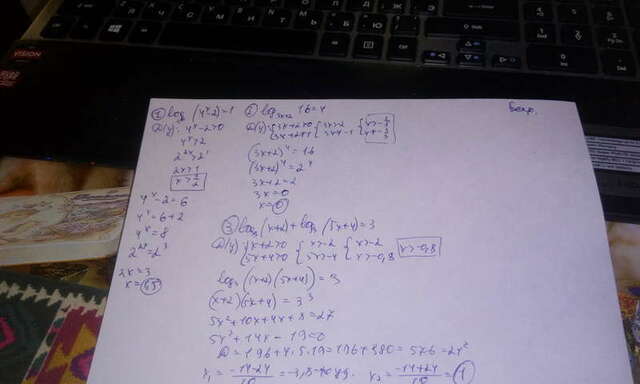 ① log₆(4ˣ-2)=1
D(y): 4ˣ-2>0
4ˣ>2
2²ˣ>2¹
2x>1
x>1/2
4ˣ-2=6
4ˣ=6+2
4ˣ=8
2²ˣ=2³
2x=3
x=1,5
② log₃ₓ₊₂ 16=4
D(y): {3x+2>0 {3x>-2 {x>-2/3
{3x+2≠1 {3x≠-1 {x≠-1/3
(3x+2)⁴=16
(3x+2)⁴=2⁴
3x+2=2
3x=0
x=0
③ log₃(x+2)+log₃(5x+4)=3
D(y) {x+2>0 {x>-2 {x>-2 x>-0,8
{5x+4>0 {5x>-4 {x>-0,8
log₃(x+2)(5x+4)=3
(x+2)(5x+4)=3³
5x²+10x+4x+8=27
5x²+14x-19=0
D=196+4.5.19=196+380=576=24²
x₁=(-14-24)/10=-3,8- x₂=(-14+24)/10=1
VISION